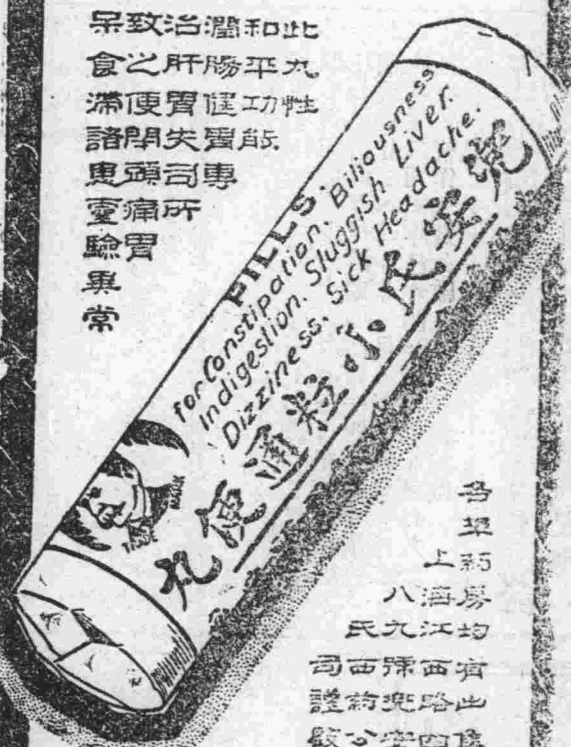 此丸性
和平功能
潤腸健胃專
治肝胃失司所
致之便閉頭痛胃
呆食滯諸患靈驗異常
PILLS.
for Constipation, Biliousness
Indigestion, Sluggish Liver.
Dizziness, Sick Headache.
兜安氏小粒通便丸
各埠药房均有出售
上海江西路四
八九號兜安
氏西药公
司謹啟